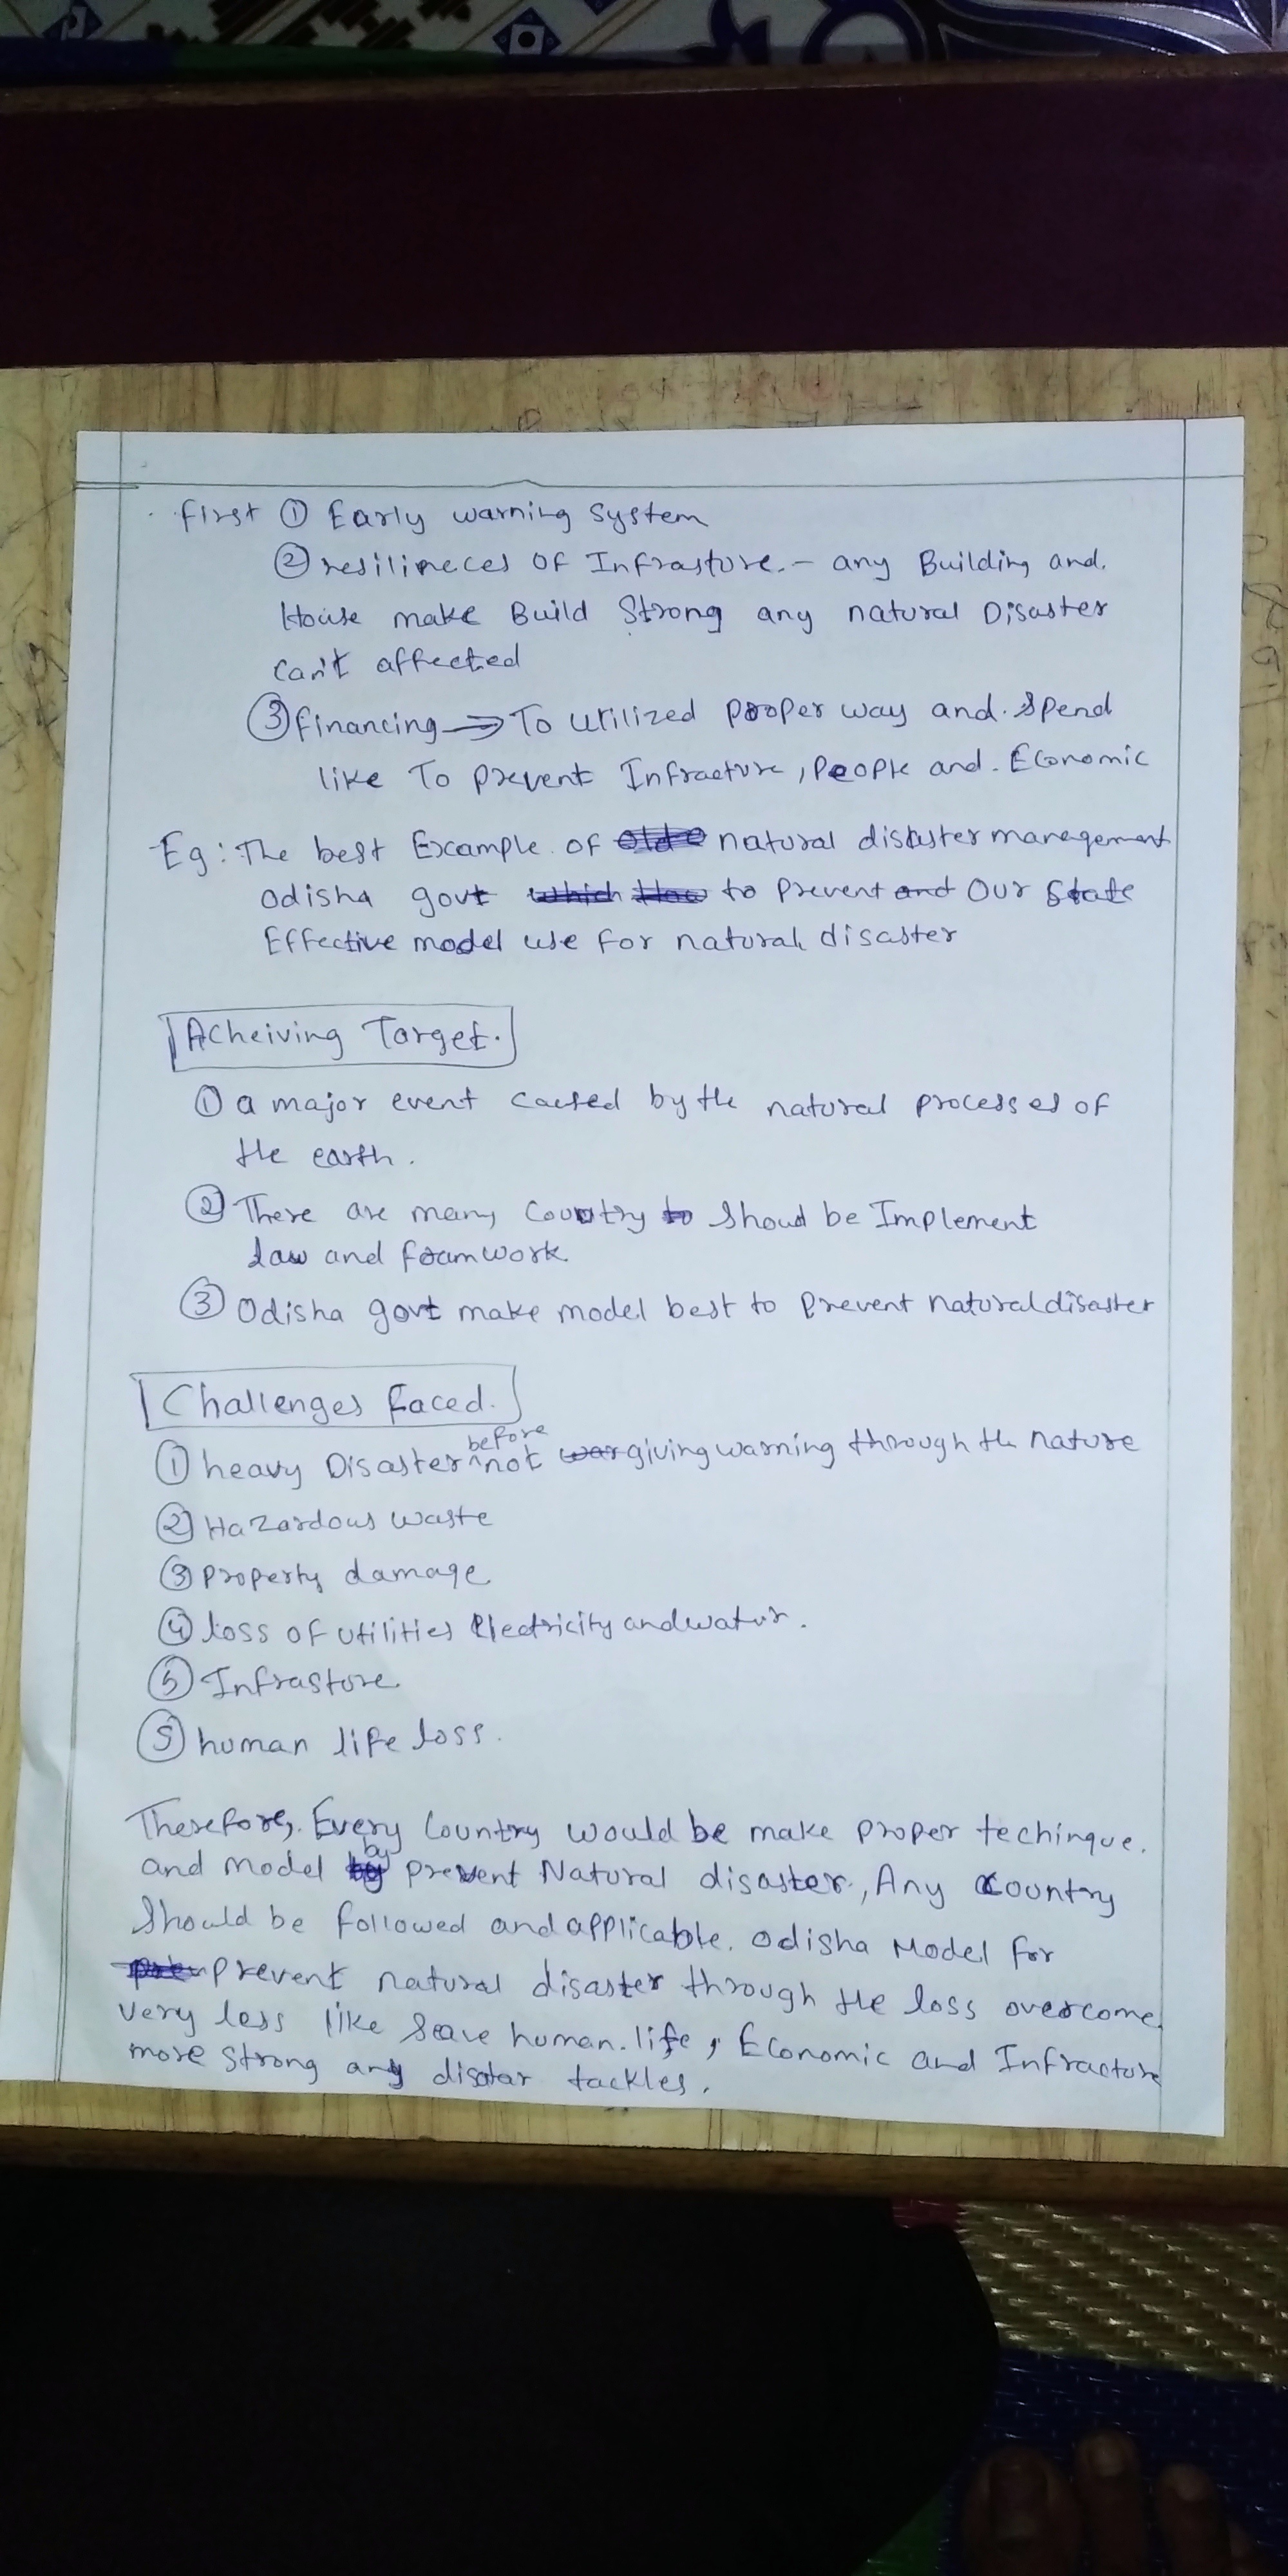 First ① Early warning System
② resilineces of Infrasture. - any Building and.
House make Build Strong any natural Disaster
can't affected
③ financing → To utilized proper way and. Spend
like To prevent Infracture, People and. Economic
Eg: The best Example of natural disaster management
Odisha govt to prevent Our State
Effective model use for natural disaster
Acheiving Target.
① a major event caused by the natural processes of
the earth.
② There are many Country Shoud be Implement
law and foamwork
③ Odisha govt make model best to Prevent natural disaster
Challenges Faced.
① heavy Disaster before not giving warning through the nature
② Hazardous waste
③ Property damage
④ loss of utilities Electricity and water.
⑤ Infrasture
⑤ human life loss.
Therefore, Every Country would be make proper techinque.
and model by prevent Natural disaster, Any Country
Should be followed and applicable. Odisha Model for
prevent natural disaster through the loss overcome
very less like Seave human life, Economic and Infracture
more strong any disatar tackles.